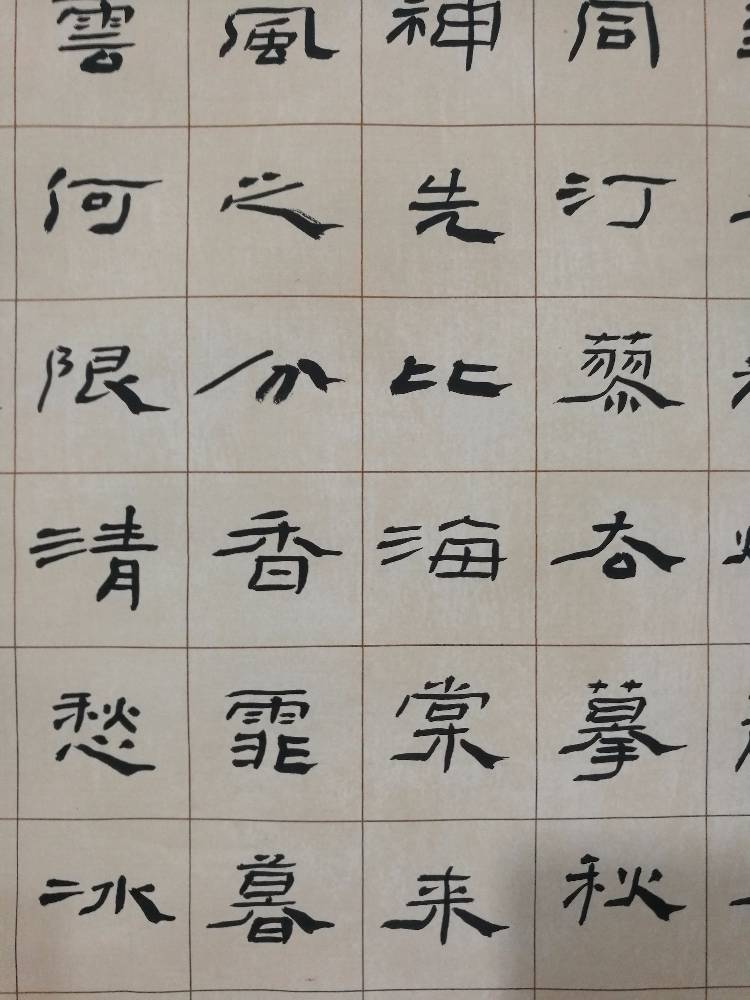 同汀蓼各摹秋
神先比海棠来
風之分香霏暮
雲何限清愁冰